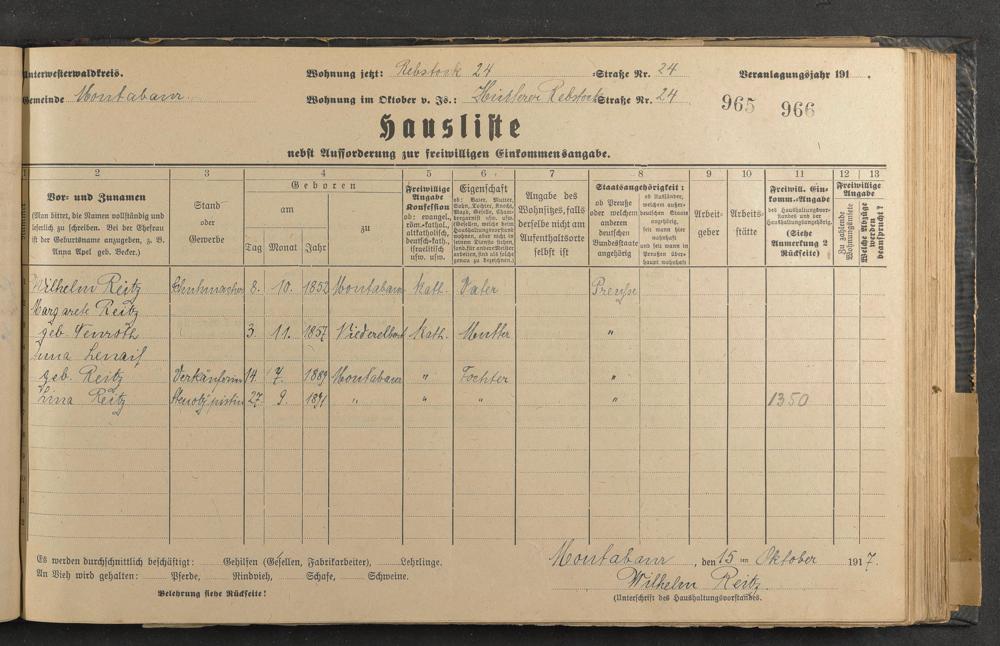 Unterwesterwaldkreis. Wohnung jetzt: Rebstock 24 Straße Nr. 24 Veranlagungsjahr 191 .
Gemeinde Montabaur Wohnung im Oktober v. Js.: Rebstock Straße Nr. 24 965 966
Hausliste
nebst Aufforderung zur freiwilligen Einkommensangabe.
1 2 3 4 5 6 7 8 9 10 11 12 13
Vor- und Zunamen
(Man bittet, die Namen vollständig und
leserlich zu schreiben. Bei der Ehefrau
ist der Geburtsname anzugeben, z. B.
Anna Apel geb. Becker.)
Stand
oder
Gewerbe
Geboren
am
zu
Tag Monat Jahr
Freiwillige
Angabe
Konfession
ob: evangel.,
röm.-kathol.,
altkatholisch,
deutsch-kath.,
israelitisch
usw. usw.
Eigenschaft
ob: Vater, Mutter,
Sohn, Tochter, Knecht,
Magd, Geselle, Cham-
bergarnist usw. usw.
(Gesellen, welche beim
Haushaltungsvorstand
wohnen, aber nicht in
seinem Dienste stehen,
sond. für andere Meister
arbeiten, sind als solche
genau zu bezeichnen.)
Angabe des
Wohnsitzes, falls
derselbe nicht am
Aufenthaltsorte
selbst ist
Staatsangehörigkeit:
ob Preuße
oder welchem
anderen
deutschen
Bundesstaate
angehörig
ob Ausländer,
welchem außer-
deutschen Staate
angehörig,
seit wann hier
wohnhaft
und seit wann in
Preußen über-
haupt wohnhaft
Arbeit-
geber
Arbeits-
stätte
Freiwill. Ein-
komm.-Angabe
des Haushaltungsvor-
standes und der
Haushaltungsangehörig.
(Siehe
Anmerkung 2
Rückseite)
Freiwillige
Angabe
Zu zahlende
Wohnungsmiete
Welche Abzüge
werden
beansprucht?
Wilhelm Reitz Schuhmacher 8. 10. 1852 Montabaur Kath. Vater Preuße
Margarete Reitz
geb. 3. 11. 1857 Niederelbert Kath. Mutter "
Anna
geb. Reitz Verkäuferin 14 7. 1889 Montabaur " Tochter "
Lina Reitz Stenotypistin 27. 9. 1891 " " " " 1350
Es werden durchschnittlich beschäftigt: Gehilfen (Gesellen, Fabrikarbeiter), Lehrlinge.
An Vieh wird gehalten: Pferde, Rindvieh, Schafe, Schweine.
Belehrung siehe Rückseite!
Montabaur, den 15 ten Oktober 1917.
Wilhelm Reitz.
(Unterschrift des Haushaltungsvorstandes.